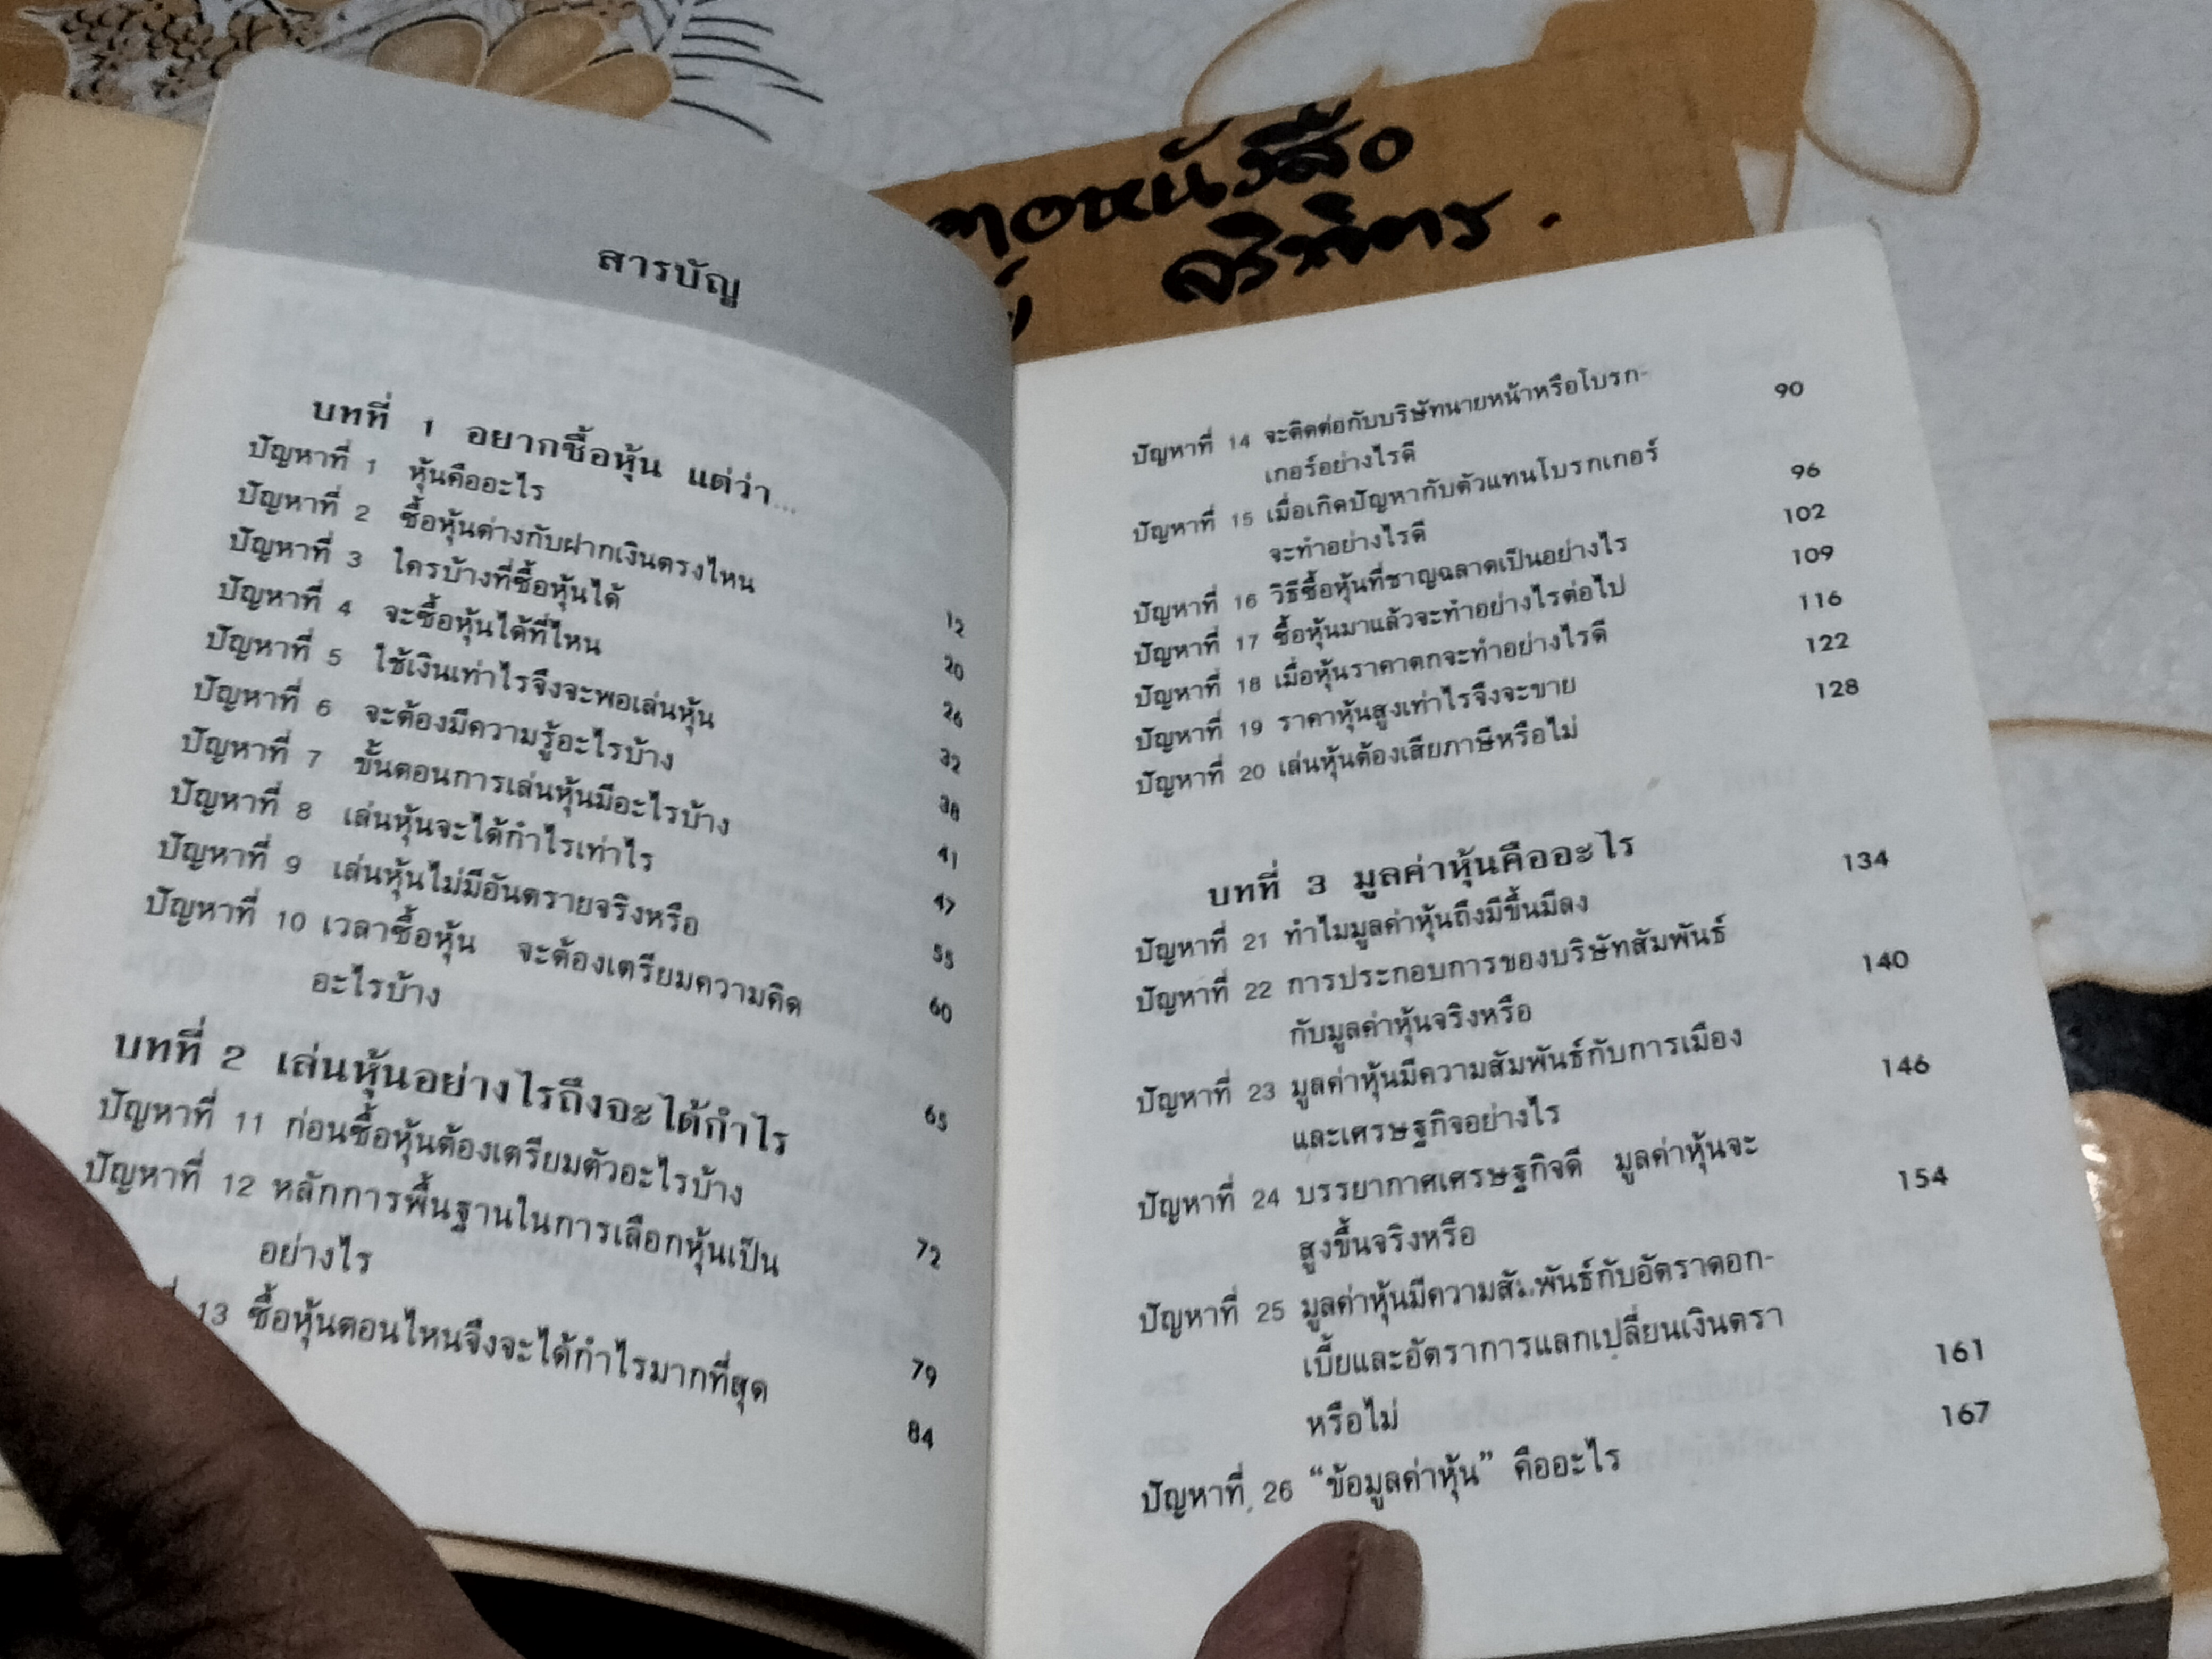 สารบัญ
บทที่ 1 อยากซื้อหุ้น แต่ว่า...
ปัญหาที่ 1 หุ้นคืออะไร 12
ปัญหาที่ 2 ซื้อหุ้นต่างกับฝากเงินตรงไหน 20
ปัญหาที่ 3 ใครบ้างที่ซื้อหุ้นได้ 26
ปัญหาที่ 4 จะซื้อหุ้นได้ที่ไหน 32
ปัญหาที่ 5 ใช้เงินเท่าไรจึงจะพอเล่นหุ้น 38
ปัญหาที่ 6 จะต้องมีความรู้อะไรบ้าง 41
ปัญหาที่ 7 ขั้นตอนการเล่นหุ้นมีอะไรบ้าง 47
ปัญหาที่ 8 เล่นหุ้นจะได้กำไรเท่าไร 55
ปัญหาที่ 9 เล่นหุ้นไม่มีอันตรายจริงหรือ 60
ปัญหาที่ 10 เวลาซื้อหุ้น จะต้องเตรียมความคิด
อะไรบ้าง 65
บทที่ 2 เล่นหุ้นอย่างไรถึงจะได้กำไร
ปัญหาที่ 11 ก่อนซื้อหุ้นต้องเตรียมตัวอะไรบ้าง 72
ปัญหาที่ 12 หลักการพื้นฐานในการเลือกหุ้นเป็น
อย่างไร 79
13 ซื้อหุ้นตอนไหนจึงจะได้กำไรมากที่สุด 84
ปัญหาที่ 14 จะติดต่อกับบริษัทนายหน้าหรือโบรก- 90
เกอร์อย่างไรดี
ปัญหาที่ 15 เมื่อเกิดปัญหากับตัวแทนโบรกเกอร์ 96
จะทำอย่างไรดี
ปัญหาที่ 16 วิธีซื้อหุ้นที่ชาญฉลาดเป็นอย่างไร 102
ปัญหาที่ 17 ซื้อหุ้นมาแล้วจะทำอย่างไรต่อไป 109
ปัญหาที่ 18 เมื่อหุ้นราคาตกจะทำอย่างไรดี 116
ปัญหาที่ 19 ราคาหุ้นสูงเท่าไรจึงจะขาย 122
ปัญหาที่ 20 เล่นหุ้นต้องเสียภาษีหรือไม่ 128
บทที่ 3 มูลค่าหุ้นคืออะไร
ปัญหาที่ 21 ทำไมมูลค่าหุ้นถึงมีขึ้นมีลง 134
ปัญหาที่ 22 การประกอบการของบริษัทสัมพันธ์
กับมูลค่าหุ้นจริงหรือ 140
ปัญหาที่ 23 มูลค่าหุ้นมีความสัมพันธ์กับการเมือง
และเศรษฐกิจอย่างไร 146
ปัญหาที่ 24 บรรยากาศเศรษฐกิจดี มูลค่าหุ้นจะ
สูงขึ้นจริงหรือ 154
ปัญหาที่ 25 มูลค่าหุ้นมีความสัมพันธ์กับอัตราดอก-
เบี้ยและอัตราการแลกเปลี่ยนเงินตรา
หรือไม่ 161
ปัญหาที่ 26 “ข้อมูลค่าหุ้น” คืออะไร 167